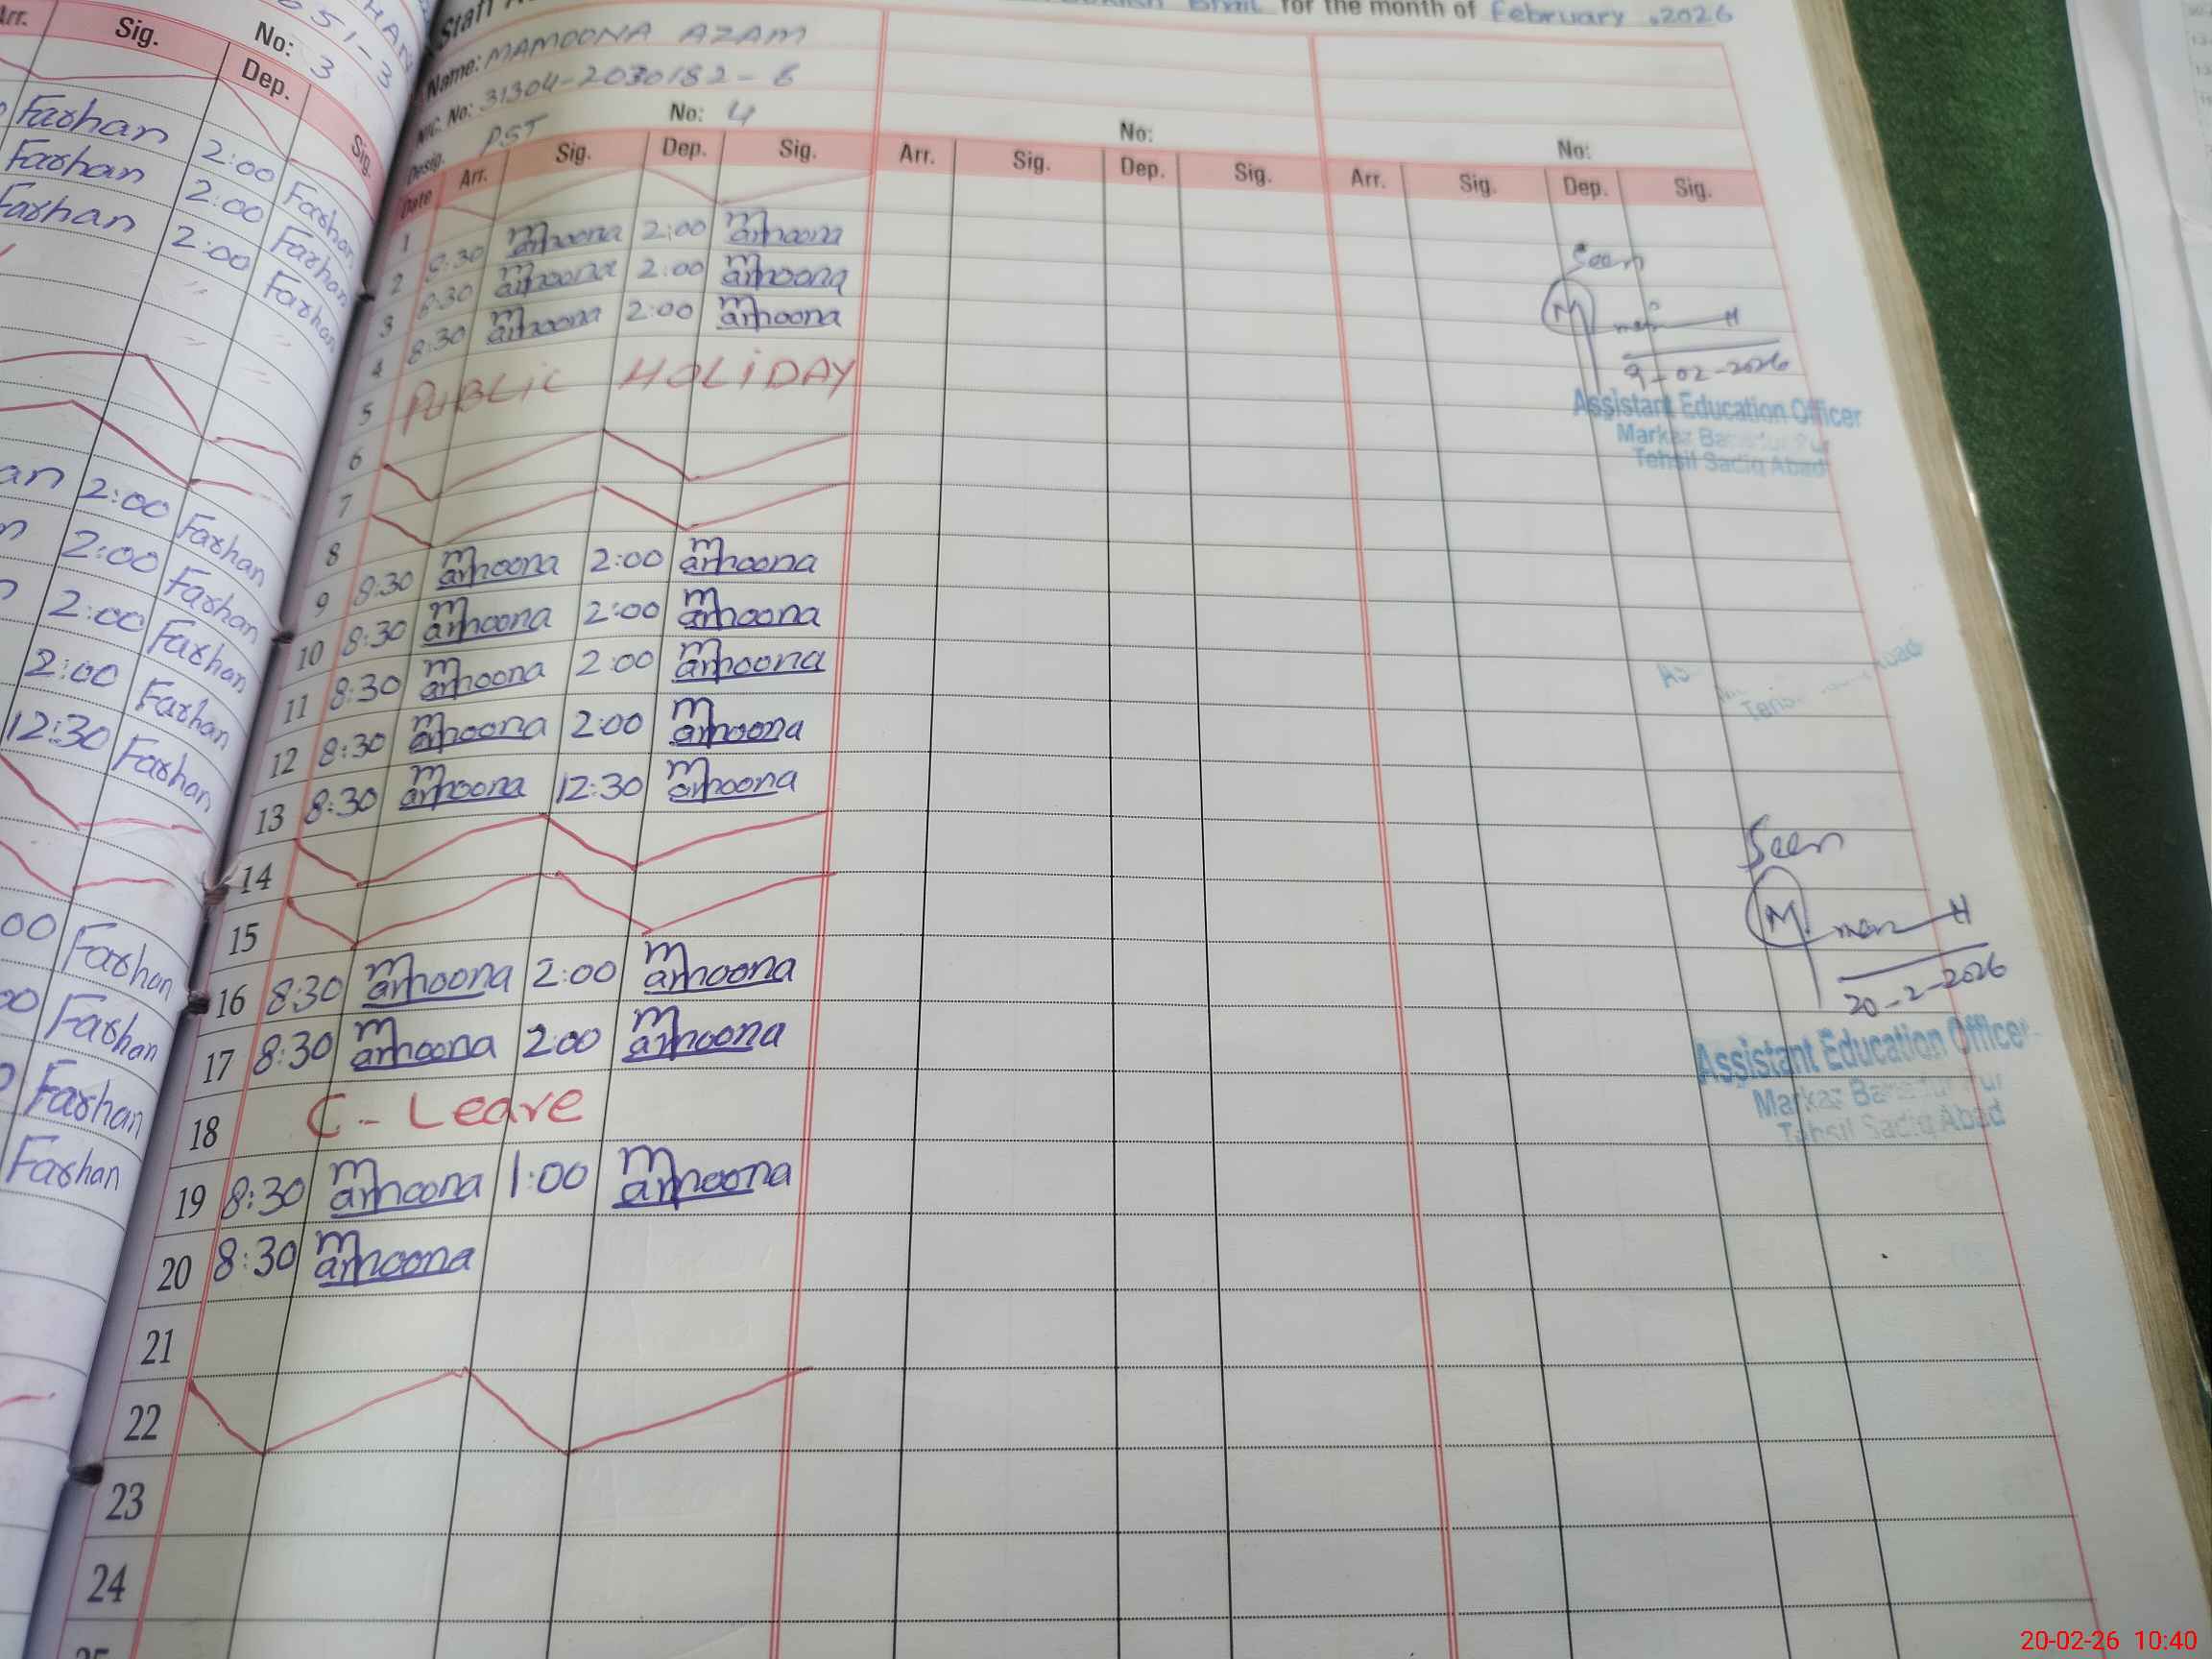 for the month of February, 2026
Name: MAMOONA AZAM
NIC. No: 31304-2030182-6
Desig. PST No: 4 No: No:
Date Arr. Sig. Dep. Sig. Arr. Sig. Dep. Sig. Arr. Sig. Dep. Sig.
1
2 8:30 Mamoona 2:00 Mamoona
3 8:30 Mamoona 2:00 Mamoona
4 8:30 Mamoona 2:00 Mamoona
5 PUBLIC HOLIDAY
6
7
8
9 8:30 Mamoona 2:00 Mamoona
10 8:30 Mamoona 2:00 Mamoona
11 8:30 Mamoona 2:00 Mamoona
12 8:30 Mamoona 2:00 Mamoona
13 8:30 Mamoona 12:30 Mamoona
14
15
16 8:30 Mamoona 2:00 Mamoona
17 8:30 Mamoona 2:00 Mamoona
18 C-Leave
19 8:30 Mamoona 1:00 Mamoona
20 8:30 Mamoona
21
22
23
24
25
Seen
9-02-2026
Assistant Education Officer
Markaz
Tehsil Sadiq Abad
Seen
20-2-2026
Assistant Education Officer
Markaz
Tehsil Sadiq Abad
Arr. Sig. No: 3
Dep. Sig.
Farhan 2:00 Farhan
Farhan 2:00 Farhan
Farhan 2:00 Farhan
2:00 Farhan
2:00 Farhan
2:00 Farhan
2:00 Farhan
12:30 Farhan
Farhan
Farhan
Farhan
Farhan
20-02-26 10:40